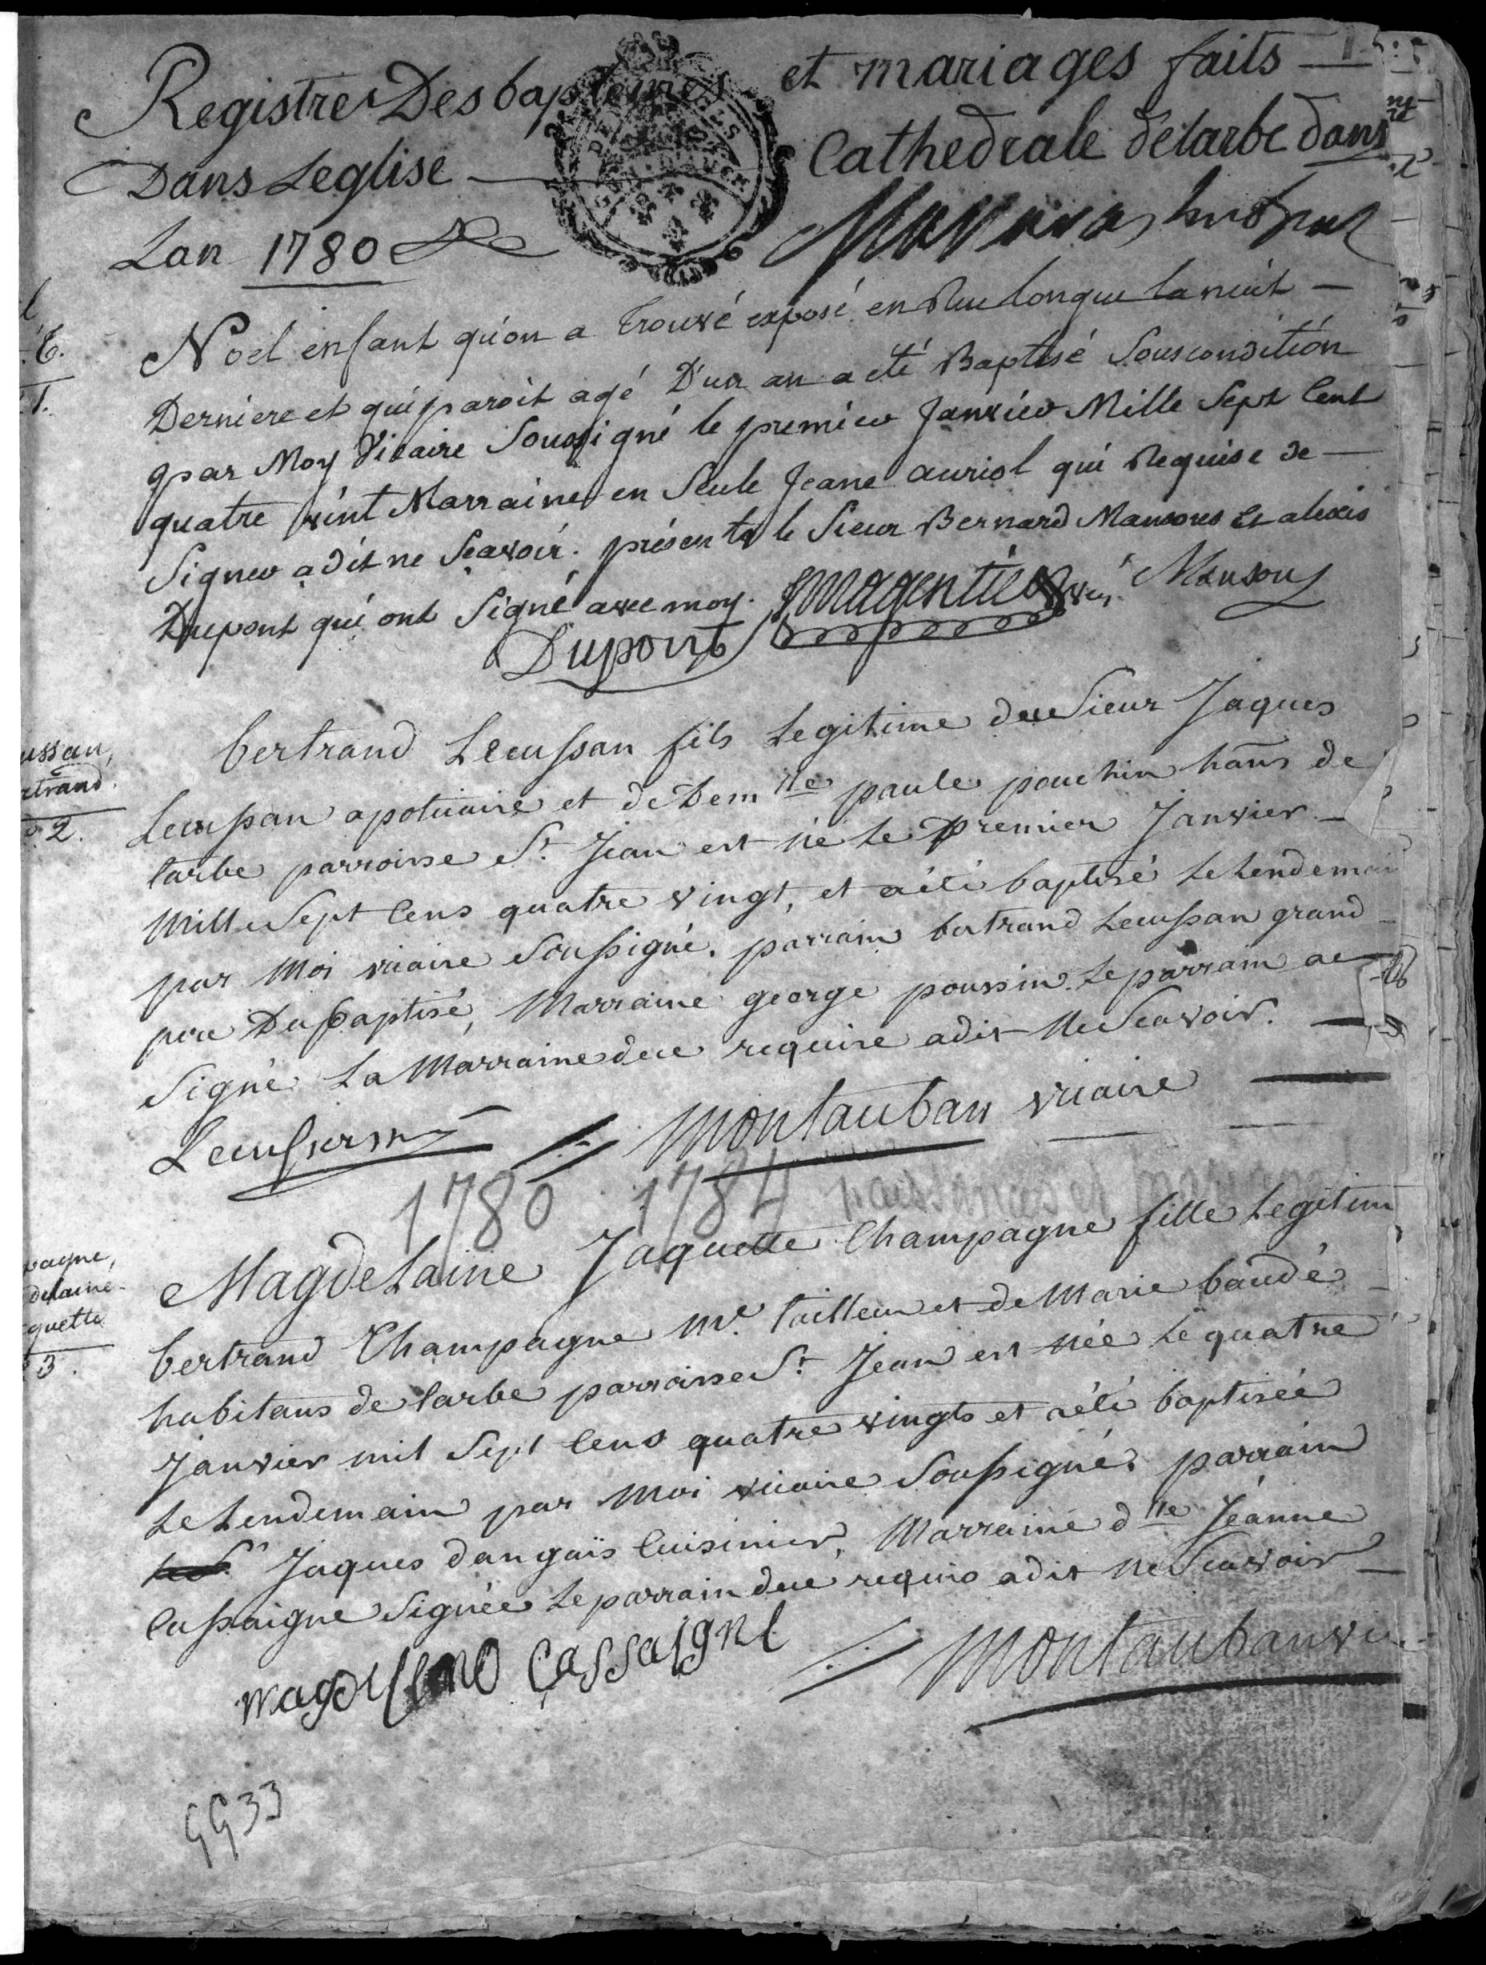 Registre Des baptemes et mariages faits
Dans Leglise Cathedrale detarbe dans
Lan 1780
l
.6.
1.
Noel enfant qu'on a trouvé exposé en Rue longue la nuit
Derniere et qui paroit agé D'un an a eté Baptisé Souscondition
par Moy Vicaire Soussigné le premier Janvier Mille Sept Cent
quatre vint Marraine en Seule Jeane auriol qui Requise de
Signer a dit ne Scavoir. présents le Sieur Bernard Mansous et alexis
Dupont qui ont Signé avec moy. Magentié vic. Mansous
Dupont
ussan,
rtrand.
2.
bertrand Lecussan fils Legitime du Sieur Jaques
Lecussan apoticaire et de Dem lle paule pouchin hāns de
tarbe parroisse St. Jean est né Le Premier Janvier
Mille Sept Cens quatre vingt, et a été baptisé Le Lendemain
par Moi vicaire Soussigné. parrain bertrand Lecussan grand
pere Du baptisé, Marraine george poussin. Le parrain a
Signé La Marraine de ce requise a dit Ne Scavoir.
Lecussan Montauban vicaire
1780 1784 naissances et mariages
pagne,
delaine
quette
3.
MagdeLaine Jaquette Champagne fille Legitim
bertrand Champagne me. tailleur et de Marie baudé
habitans de tarbe parroisse St. Jean est née Le quatre
Janvier mil Sept Cens quatre vingts et a été baptisée
Le Lendemain par Moi vicaire Soussigné. parrain
Jaques dangaïs Cuisinier, Marraine dlle Jéanne
Cassaigne Signée Le parrain de ce requis a dit Ne Scavoir
Cassaigne Montauban vic
GG33